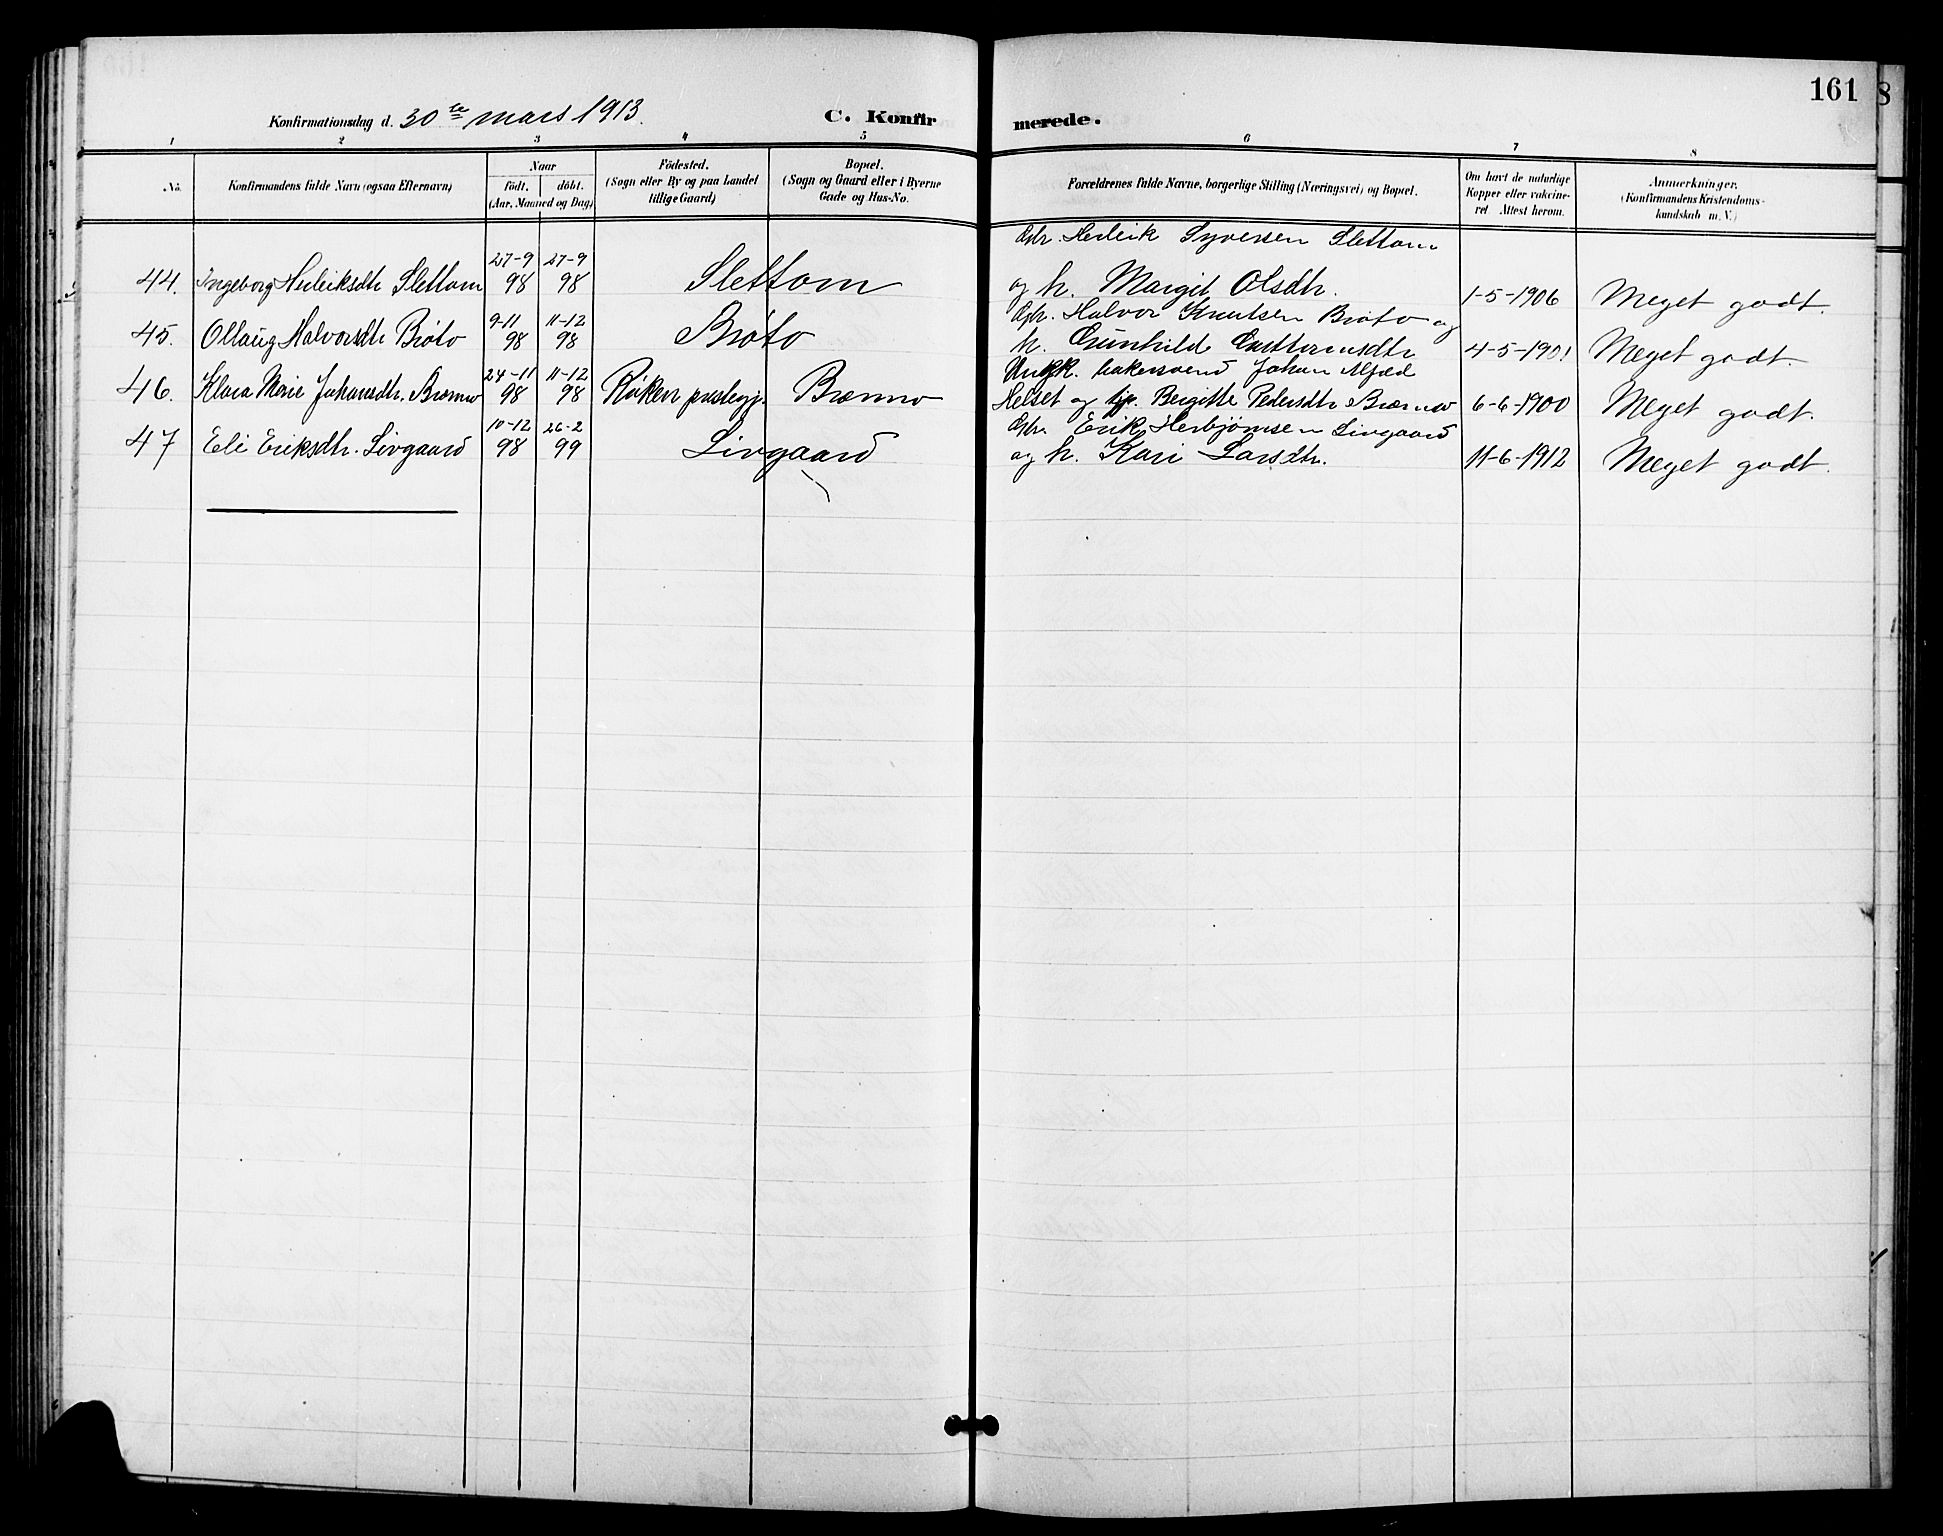 161
8
Konfirmationsdag d. 30te mars 1913.
C. Konfirmerede.
1 2 3 4 5 6 7 8
No.
Konfirmandens fulde Navn (ogsaa Efternavn)
Naar
födt. döbt.
(Aar, Maaned og Dag)
Födested.
(Sogn eller By og paa Landet
tillige Gaard)
Bopæl.
(Sogn og Gaard eller i Byerne
Gade og Hus-No.
Forældrenes fulde Navne, borgerlige Stilling (Næringsvei) og Bopæl.
Om havt de naturlige
Kopper eller vakcine-
ret Attest herom.
Anmærkninger.
(Konfirmandens Kristendoms-
kundskab m. V.)
Gbr. Herleik Syversen Slettom
27-9 27-9
44. Ingeborg Herleiksdtr Slettom 98 98 Slettom og h. Margit Olsdtr. 1-5-1906 Meget godt.
9-11 11-12 Gbr. Halvor Knutsen Bröto og
45. Ollaug Halvorsdtr Bröto 98 98 Bröto h. Gunhild Guttormsdtr 4-5-1901 Meget godt.
24-11 11-12 Ungk. bakersvend Johan Alfred
46. Klara Marie Johansdtr. Brænno 98 98 Röken prestegj. Brænno Helset og pp. Birgitte Pedersdtr Brænno 6-6-1900 Meget godt.
10-12 26-2 Gbr. Erik Herbjørnsen Livgaard
47 Eli Eriksdtr. Livgaard 98 99 Livgaard og h. Kari Larsdtr. 11-6-1912 Meget godt.